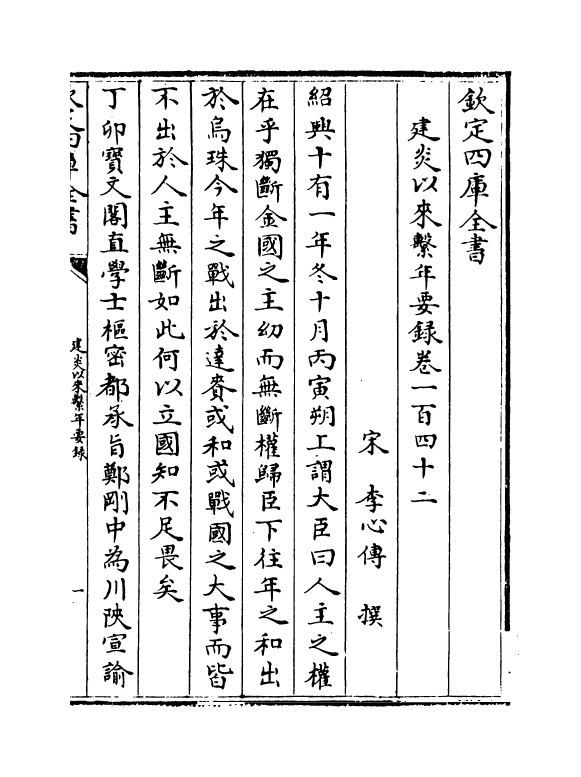 欽定四庫全書
建炎以來繫年要録卷一百四十二
宋 李心傳 撰
紹興十有一年冬十月丙寅朔上謂大臣曰人主之權
在乎獨斷金國之主幼而無斷權歸臣下往年之和出
於烏珠今年之戰出於達賚或和或戰國之大事而皆
不出於人主無斷如此何以立國知不足畏矣
丁卯寶文閣直學士樞密都承旨鄭剛中為川陜宣諭
欽定四庫全書
建炎以來繫年要録
一